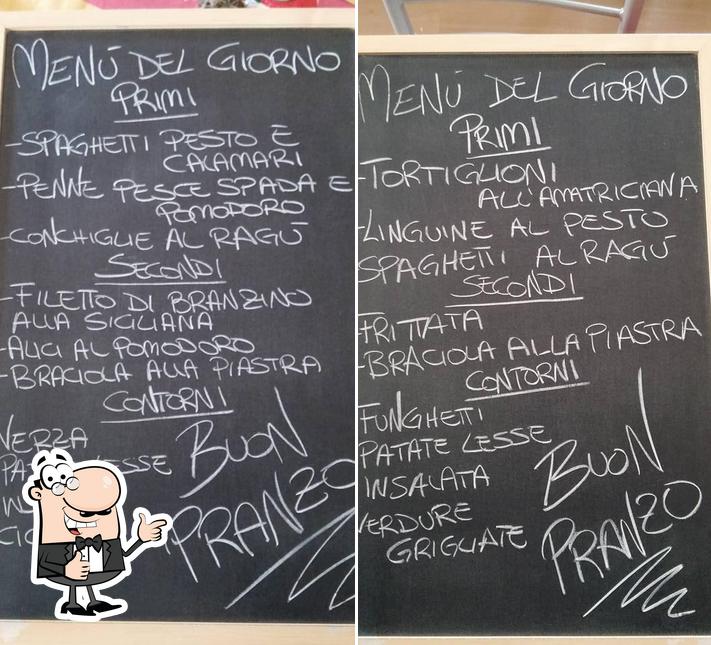 MENÙ DEL GIORNO
PRIMI
-SPAGHETTI PESTO E
CALAMARI
-PENNE PESCE SPADA E
POMODORO
-CONCHIGLIE AL RAGÙ
SECONDI
-FILETTO DI BRANZINO
ALLA SICILIANA
-ALICI AL POMODORO
-BRACIOLA ALLA PIASTRA
CONTORNI
VERZA
LESSE
BUON
PRANZO
MENÙ DEL GIORNO
PRIMI
-TORTIGLIONI
ALL'AMATRICIANA
-LINGUINE AL PESTO
SPAGHETTI AL RAGÙ
SECONDI
-FRITTATA
-BRACIOLA ALLA PIASTRA
CONTORNI
FUNGHETTI
PATATE LESSE
INSALATA
VERDURE
GRIGLIATE
BUON
PRANZO